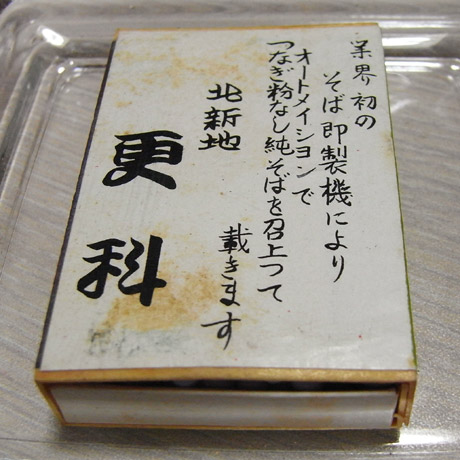 業界初の
そば即製機により
オートメイションで
つなぎ粉なし純そばを召上つて
載きます
北新地
更科